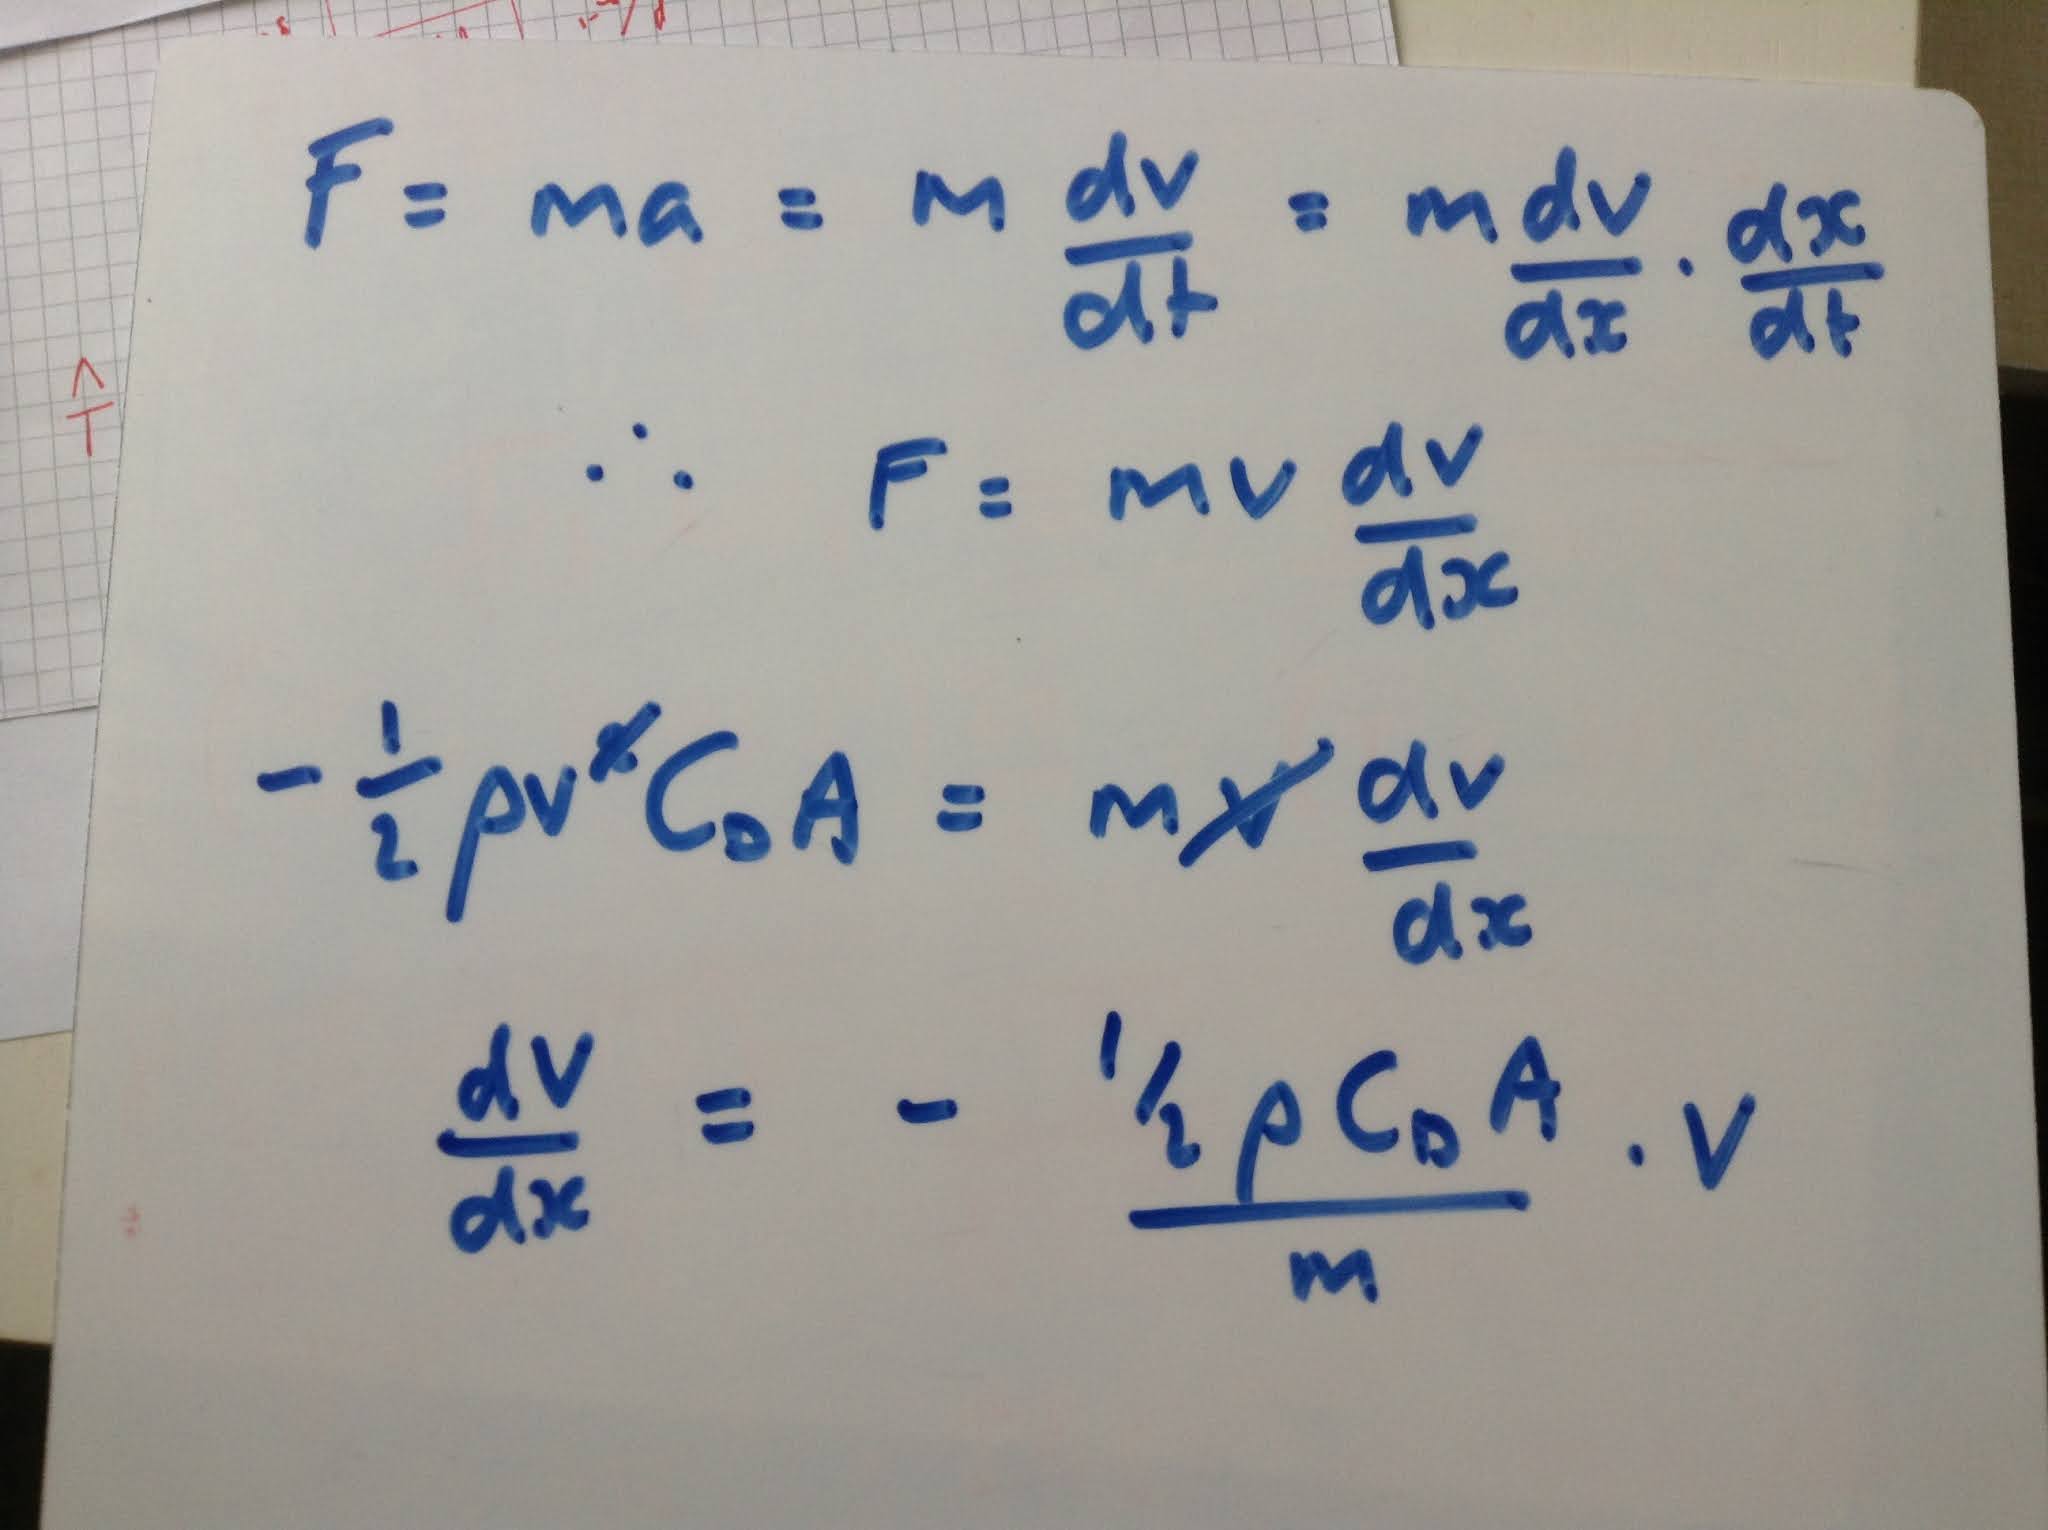 F = ma = m dv/dt = m dv/dx · dx/dt
∴ F = mv dv/dx
- 1/2 ρv² C_D A = mv dv/dx
dv/dx = - (1/2 ρ C_D A)/m · v